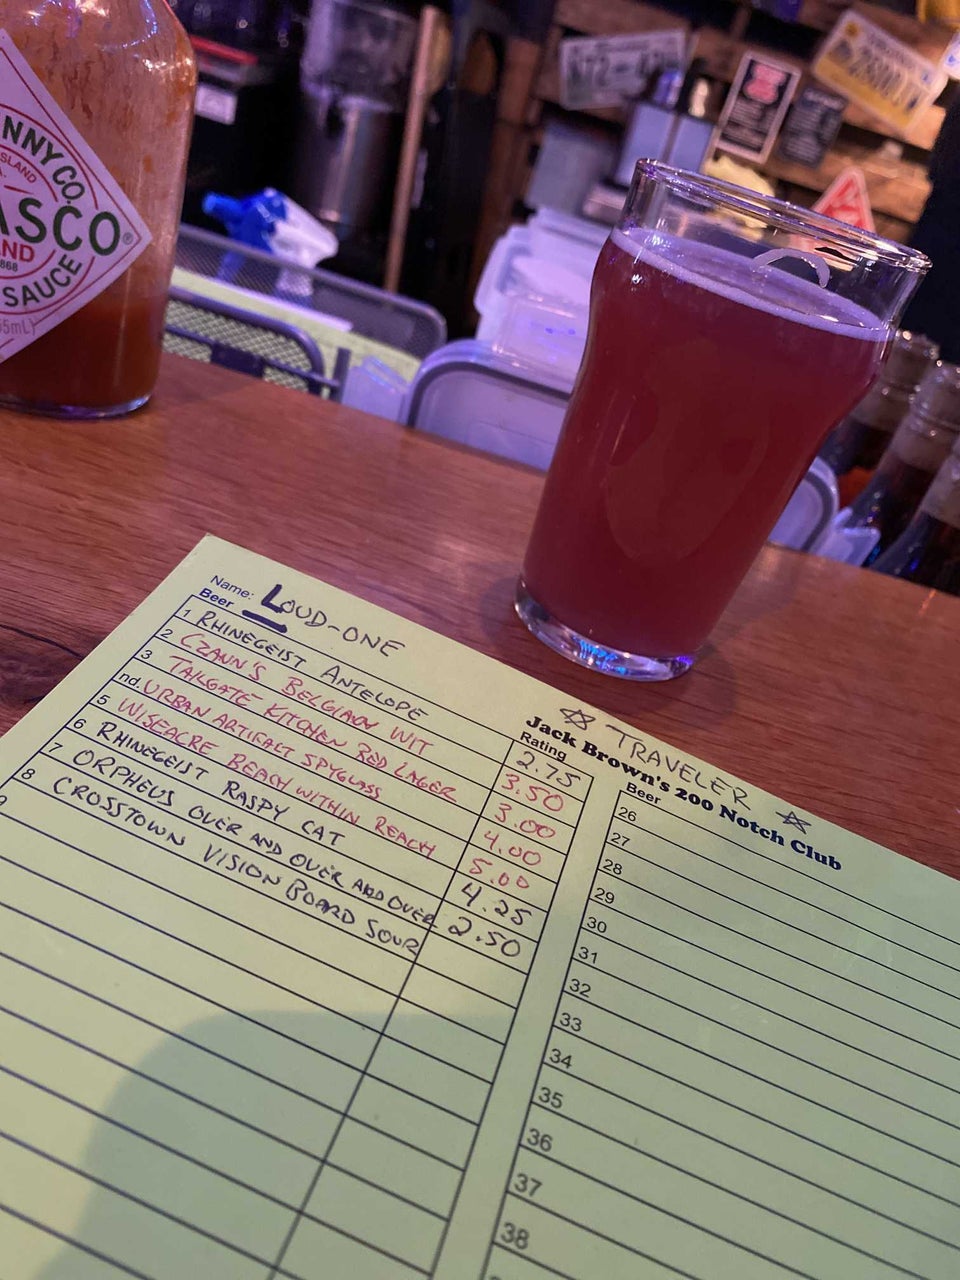 NNY CO.
ISLAND
ASCO®
AND
1868
SAUCE
Name: LOUD-ONE
☆ TRAVELER ☆
Jack Brown's 200 Notch Club
Beer Rating
1 RHINEGEIST ANTELOPE 2.75
2 CZANN'S BELGIAN WIT 3.50
3 TAILGATE KITCHEN RED LAGER 3.00
nd. URBAN ARTIFACT SPYGLASS 4.00
5 WISEACRE BEACH WITHIN REACH 5.00
6 RHINEGEIST RASPY CAT 4.25
7 ORPHEUS OVER AND OVER AND OVER 2.50
8 CROSSTOWN VISION BOARD SOUR
Beer
26
27
28
29
30
31
32
33
34
35
36
37
38